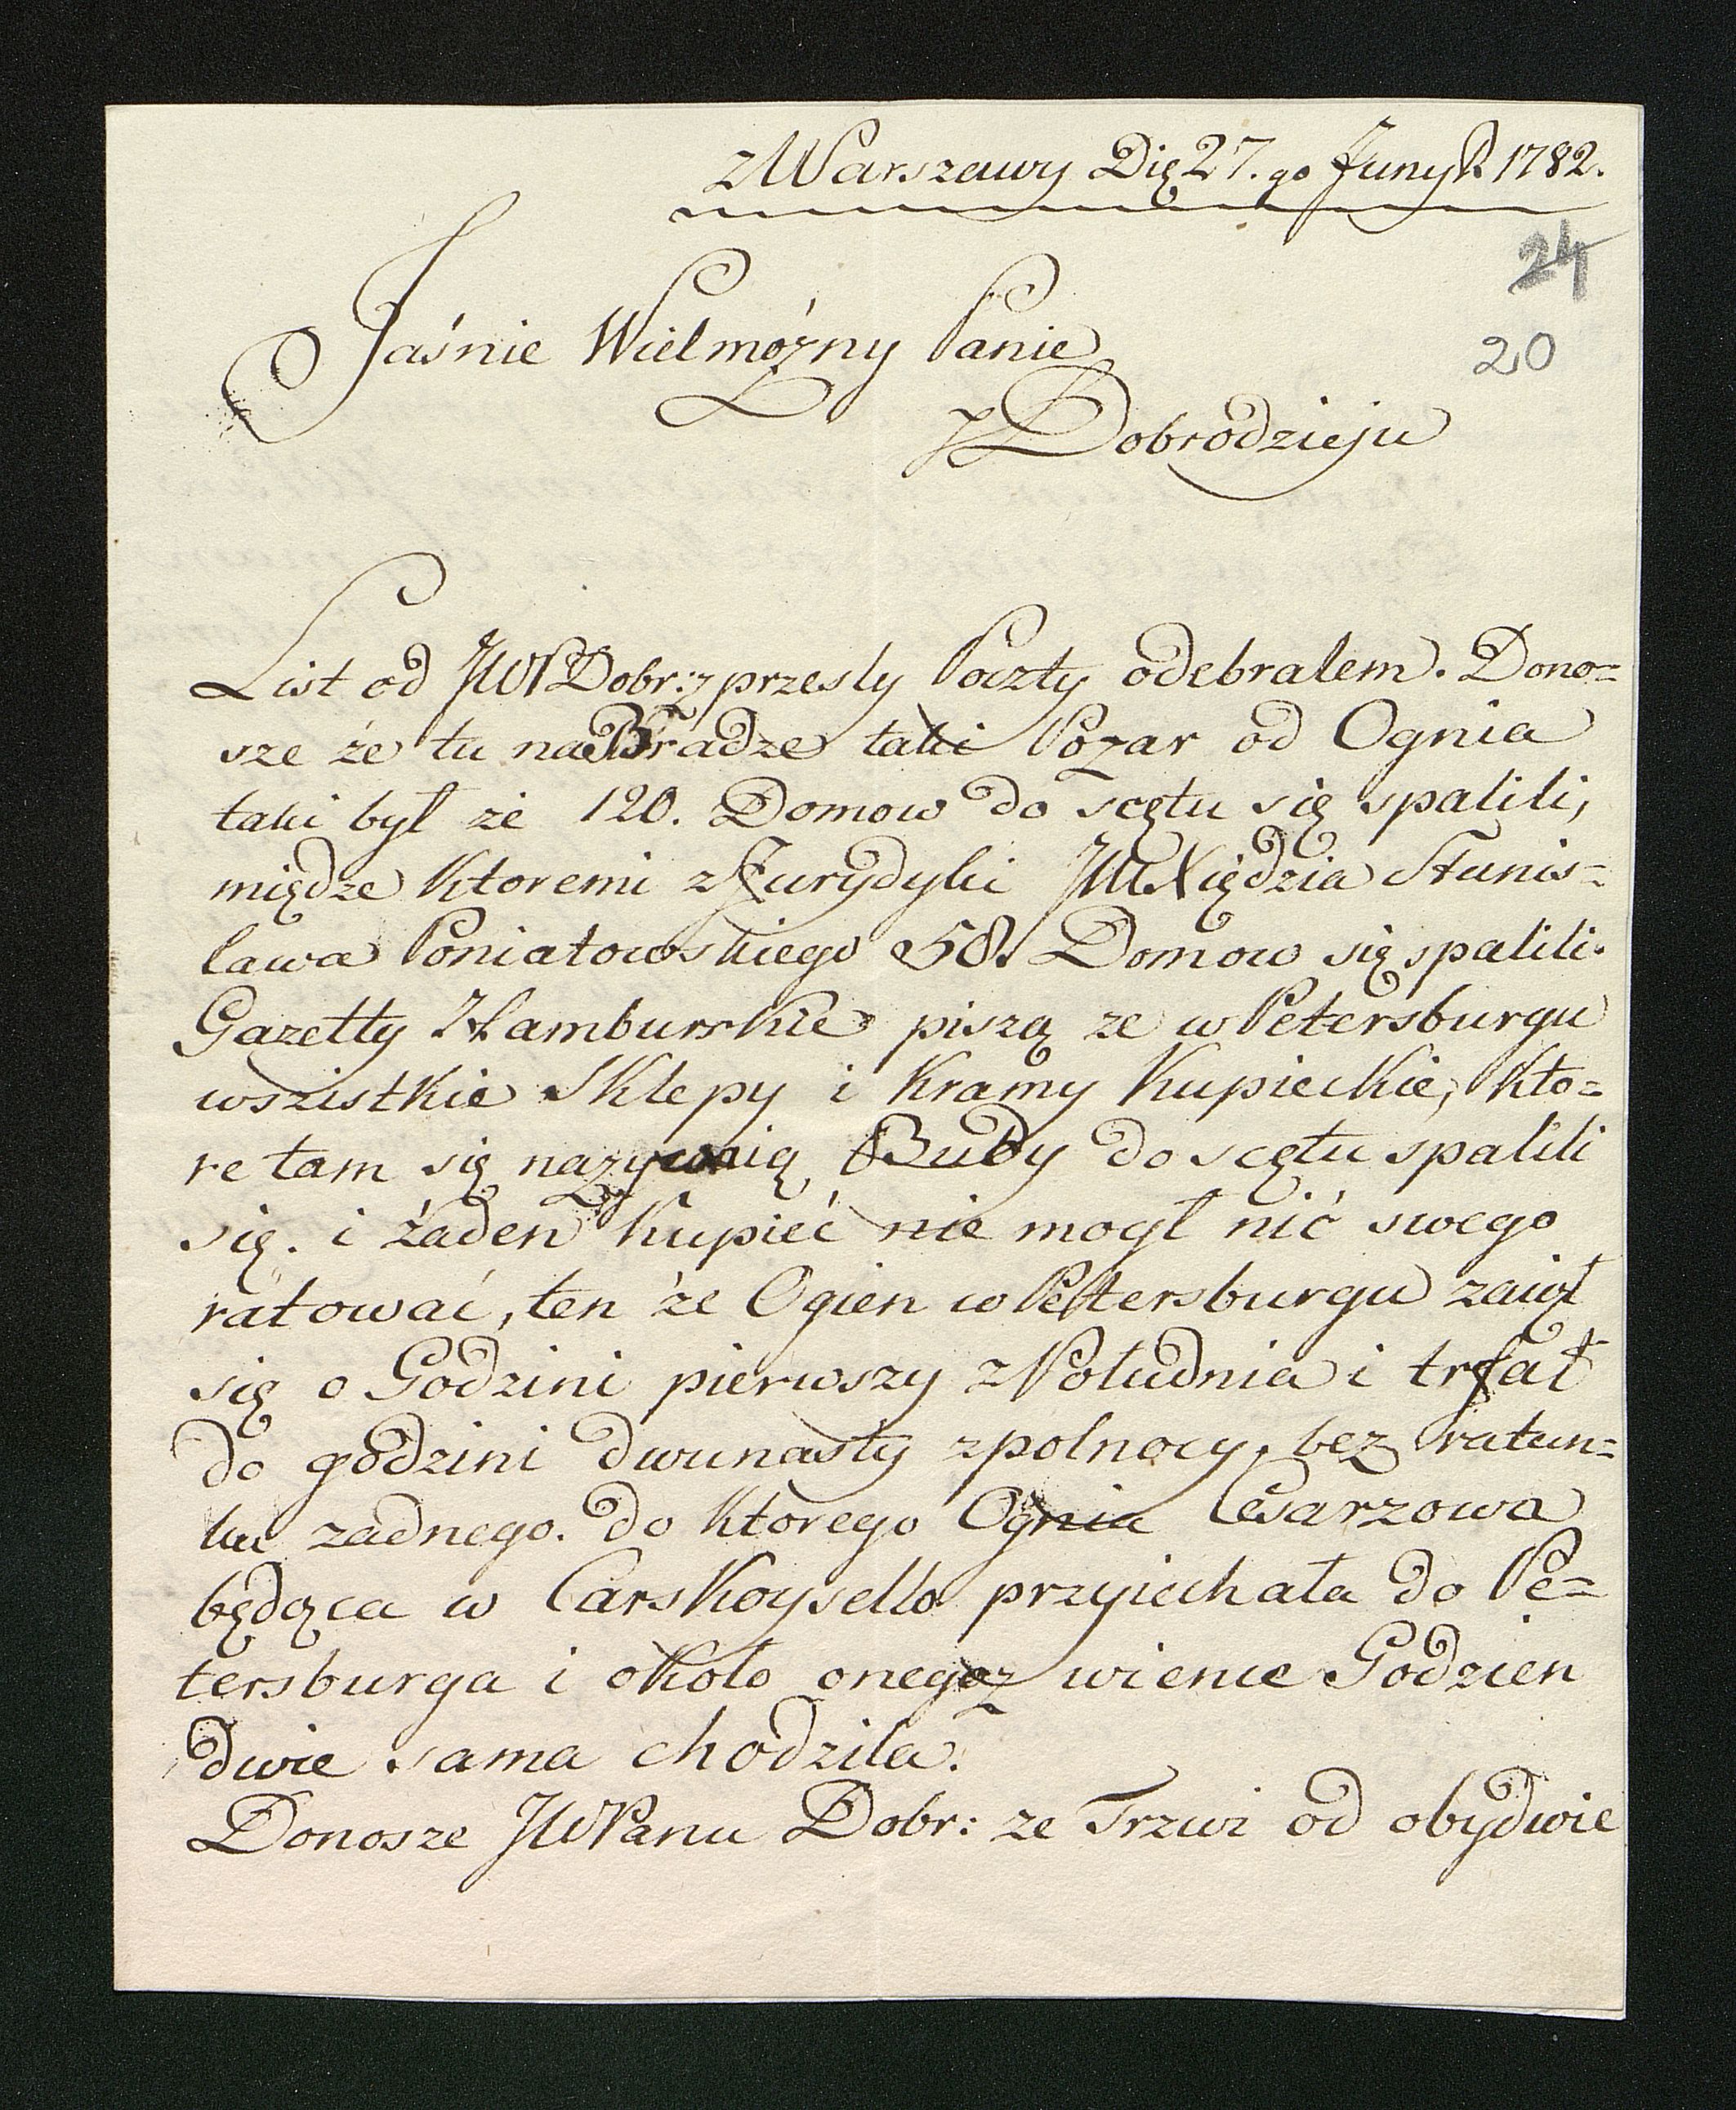 z Warszawy Dię 27.go Juny R 1782.
24
20
Jaśnie Wielmożny Panie
y Dobrodzieju
List od JWPDobr: z przesly Poczty odebralem. Dono=
sze że tu na Pradze taki Pożar od Ognia
taki był że 120. Domow do scętu się spalili,
międze ktoremi z Jurydyki JMXiędzia Stanis=
lawa Poniatowskiego 58. Domow się spalili.
Gazetty Hamburskie piszą ze w Petersburgu
wszistkie Sklepy i kramy kupieckie, kto=
re tam się nazywaią Budy do scętu spalili
się. i żaden kupieć nie mogł nić swego
ratować, ten że Ogien w Petersburgu zaiął
się o Godzini pierwszy z Południa i trfał
do godzini dwunasty z polnocy, bez ratun=
ku zadnego. do ktorego Ognia Cesarzowa
będąca w CarsKoysello przyiechała do Pe=
tersburga i około onegoz wience Godzien
dwie sama chodzila.
Donosze JWPanu Dobr: ze Trzwi od obydwie